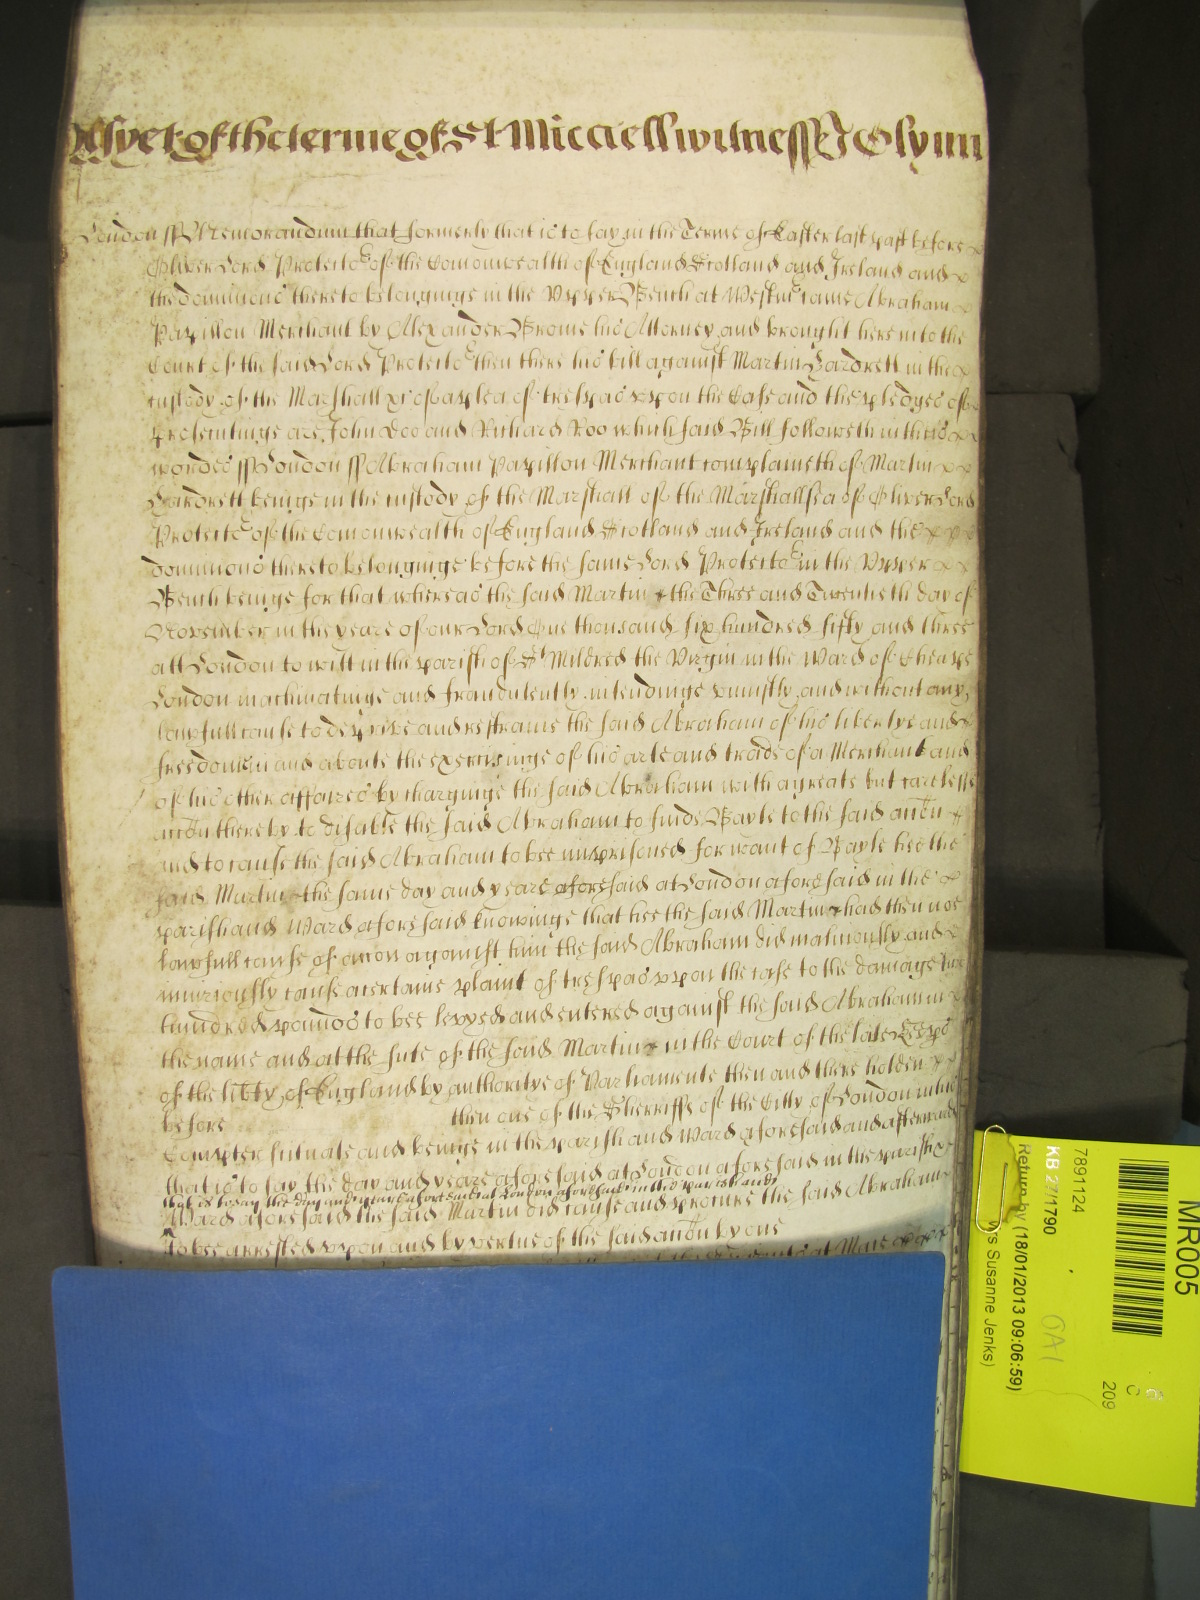 As yet of the terme of St Micaell witness J Glynn
London ss Memorandum that formerly that is to say in the Terme of Easter last past before
Oliver Lord Protector of the Comonwealth of England Scotland and Ireland and
the dominions thereto belonginge in the Upper Bench at Westmr came Abraham
Papillon Merchant by Alexander Brome his Attorney and brought here into the
Court of the said Lord Protector then there his bill against Martin Dardrett in the
custody of the Marshall &c of a plea of trespas uppon the Case and the pledges of
prosecutinge are John Doo and Richard Roo which said Bill followeth in theis
wordes ss London ss Abraham Papillon Merchant complaineth of Martin
Dardrett beinge in the custody of the Marshall of the Marshallsea of Oliver Lord
Protector of the Comonwealth of England Scotland and Ireland and the
dominions thereto belonginge before the same Lord Protector in the Upper
Bench beinge for that whereas the said Martin the Three and Twentieth day of
November in the yeare of our Lord One thousand six hundred fifty and three
att London to witt in the parish of St Mildred the Virgin in the Ward of Cheape
London machinatinge and fraudulently intendinge uniustly and without any
lawfull cause to deprive and restraine the said Abraham of his libertye and
freedome in and aboute the exercisinge of his arte and trade of a Merchant and
of his other affaires by charginge the said Abraham with a greate but carelesse
accon thereby to disable the said Abraham to finde Bayle to the said accon
and to cause the said Abraham to bee imprisoned for want of Bayle hee the
said Martin the same day and yeare aforesaid at London aforesaid in the
parish and Ward aforesaid knowinge that hee the said Martin had then noe
lawfull cause of accon against him the said Abraham did maliciously and
iniuriously cause a certaine plaint of trespas uppon the case to the damage
hundred pounds to bee levyed and entered against the said Abraham in
the name and at the sute of the said Martin in the Court of the late Keeps
of the libty of England by authoritye of Parliamente then and there holden
before then one of the Sherriffs of the Citty of London in the
Compter scituate and beinge in the parish and Ward aforesaid and afterwards
that is to say the day and yeare aforesaid at London aforesaid in the parish &
that is to say the day and yeare aforesaid at London aforesaid in the parish and
Ward aforesaid the said Martin did cause and procure the said Abraham
to bee arrested uppon and by vertue of the said accon by one
MR005
7891124
KB 27/1790
Return by (18/01/2013 09:06:59)
Susanne Jenks)
209